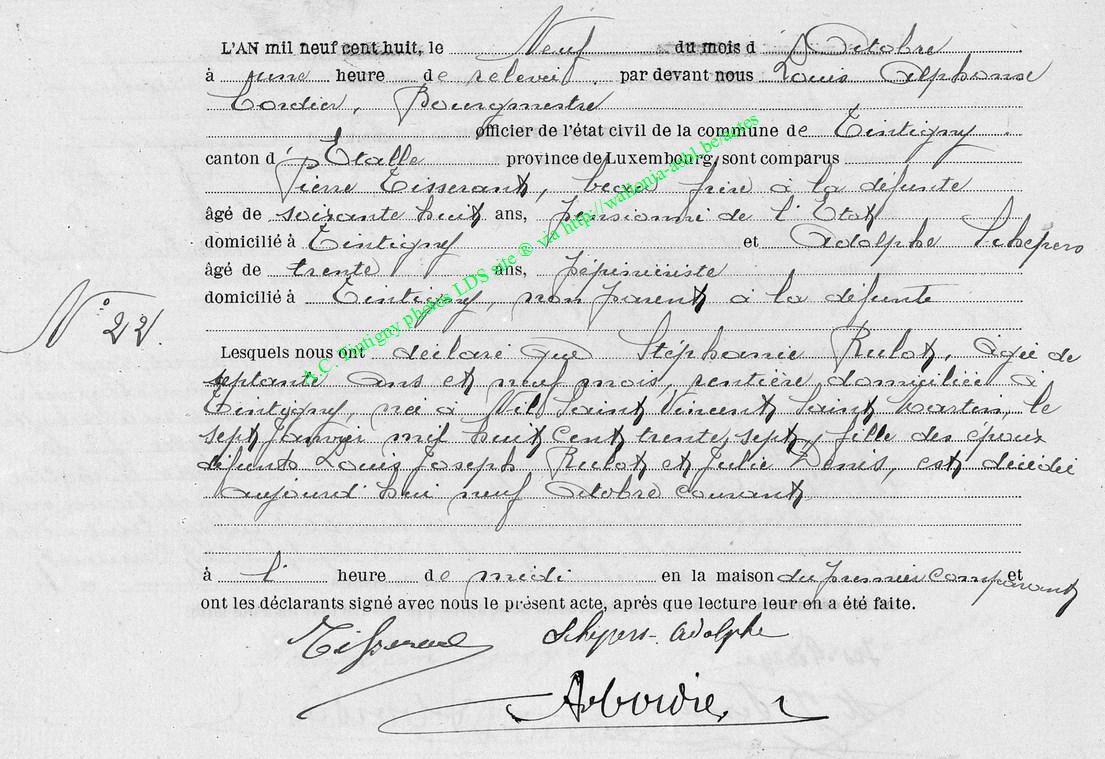 L'AN mil neuf cent huit, le Neuf du mois d'Octobre
à une heure de relevée, par devant nous Louis Alphonse
Cordier, Bourgmestre
officier de l'état civil de la commune de Tintigny
canton d'Etalle province de Luxembourg, sont comparus
Pierre Tisserant, beau frère à la défunte
âgé de soixante huit ans, pensionné de l'Etat
domicilié à Tintigny et Adolphe Schepers
âgé de trente ans, pépiniériste
domicilié à Tintigny, non parent à la défunte
N° 22.
Lesquels nous ont déclaré que Stéphanie Rulot, agée de
septante ans et neuf mois, rentière, domiciliée à
Tintigny, née à Nil Saint Vincent Saint Martin, le
sept Janvier mil huit cent trente sept, fille des époux
défunts Louis Joseph Rulot et Julie Denis, est décédée
aujourd'hui neuf Octobre courant
à l' heure de midi en la maison du premier comparant et
ont les déclarants signé avec nous le présent acte, après que lecture leur en a été faite.
Tisserant Schepers Adolphe
A.C. Tintigny photos LDS site ® via http://wallonia-asbl.be/actes